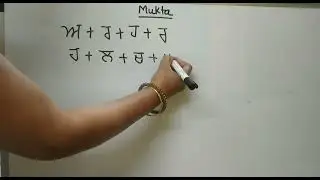 Mukta
ਅ + ਰ + ਹ + ਰ
ਹ + ਲ + ਚ +